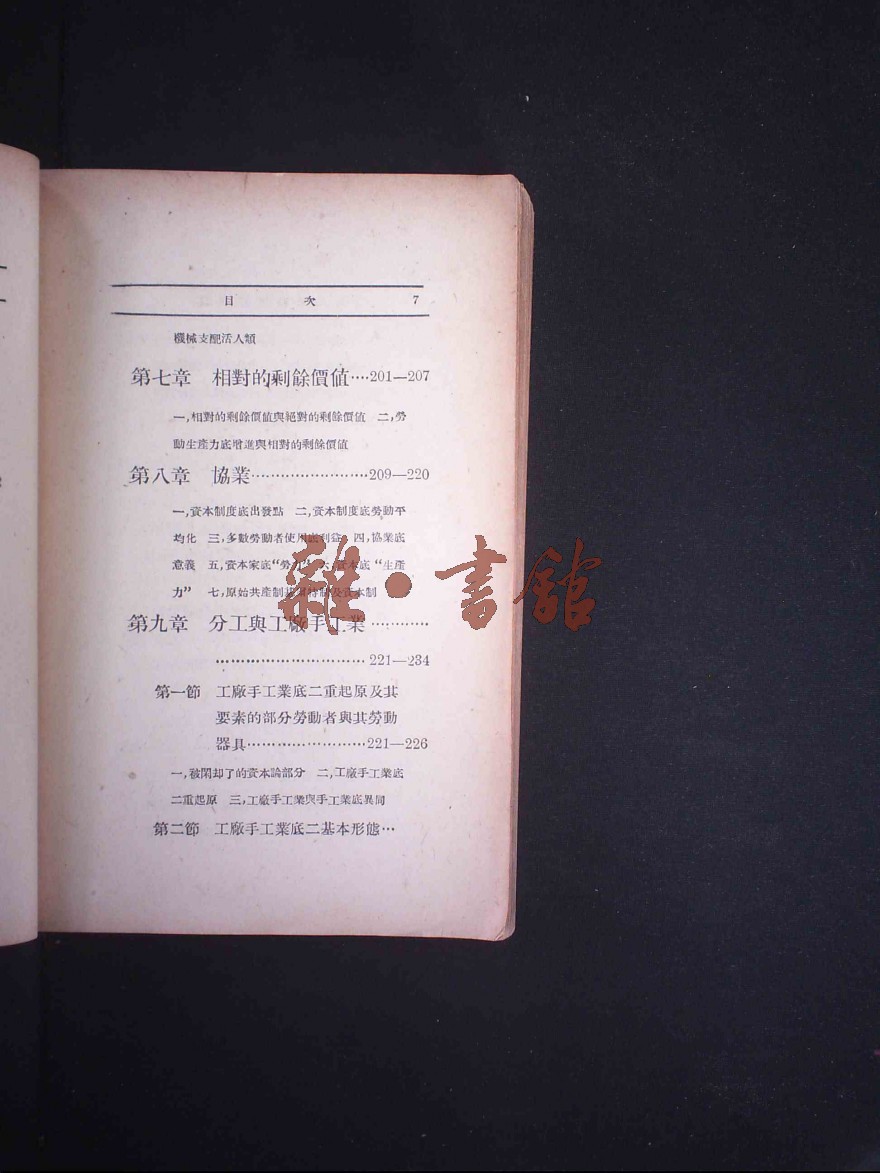 目 次 7
機械支配活人類
第七章 相對的剩餘價値····201—207
一，相對的剩餘價値與絕對的剩餘價値 二，勞
動生產力底增進與相對的剩餘價値
第八章 協業························209—220
一，資本制度底出發點 二，資本制度底勞動平
均化 三，多數勞動者使用底利益 四，協業底
意義 五，資本家底“勞 六，資本底“生產
力” 七，原始共產制 資本制
第九章 分工與工廠手工業············
······························221—234
第一節 工廠手工業底二重起原及其
要素的部分勞動者與其勞動
器具························221—226
一，被閑却了的資本論部分 二，工廠手工業底
二重起原 三，工廠手工業與手工業底異同
第二節 工廠手工業底二基本形態···
雜·書館